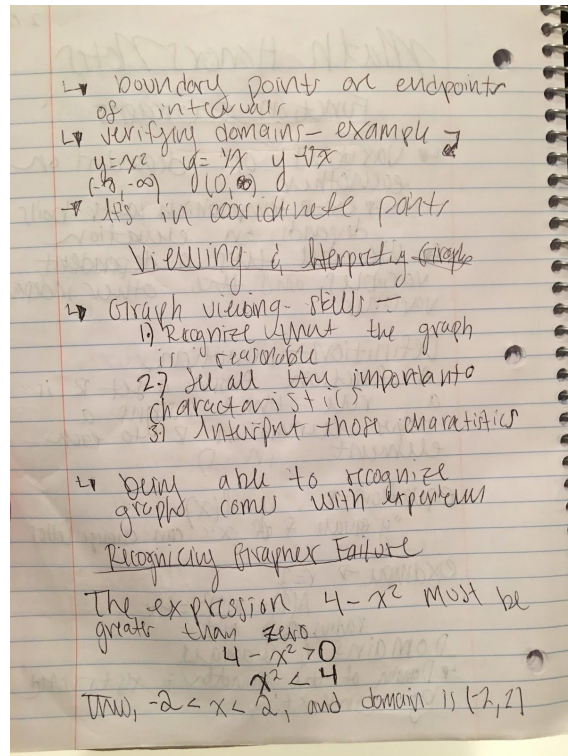 ↳ boundary points are endpoints
of intervals
↳ verifying domains - example
y=x² y=1/x y=√x
(-∞,-∞) (0,∞)
→ It's in cooridinete points
Viewing & Interpreting Graphs
↳ Graph viewing - skills -
1.) Recognize that the graph
is reasonable
2.) See all the important
characteristics
3.) Interput those charatistics
↳ being able to recognize
graphs comes with experience
Recognicing Grapher Failure
The expression 4-x² must be
greater than zero
4-x²>0
x²<4
Thus, -2<x<2, and domain is (-2,2)